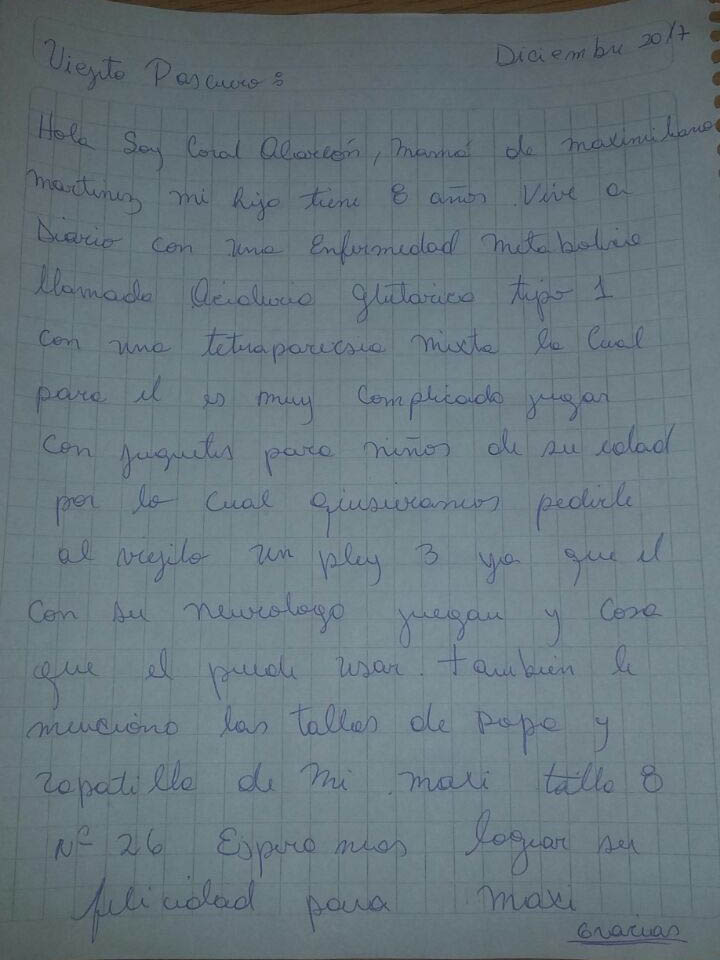 Diciembre 2017
Viejito Pascuero:
Hola Soy Coral Alarcón, Mamá de maximiliano
martinez mi hijo tiene 8 años. Vive a
Diario con una Enfermedad metabolica
llamada Aciduria glutarica tipo 1
con una tetraparecsia mixta la Cual
para el es muy complicado jugar
con juguetes para niños de su edad
por lo cual quisieramos pedirle
al viejito un pley 3 ya que el
con su neurologo juegan y cosa
que el puede usar. También le
menciono las tallas de ropa y
zapatilla de mi maxi talla 8
Nº 26 Esperamos lograr su
felicidad para maxi
Gracias